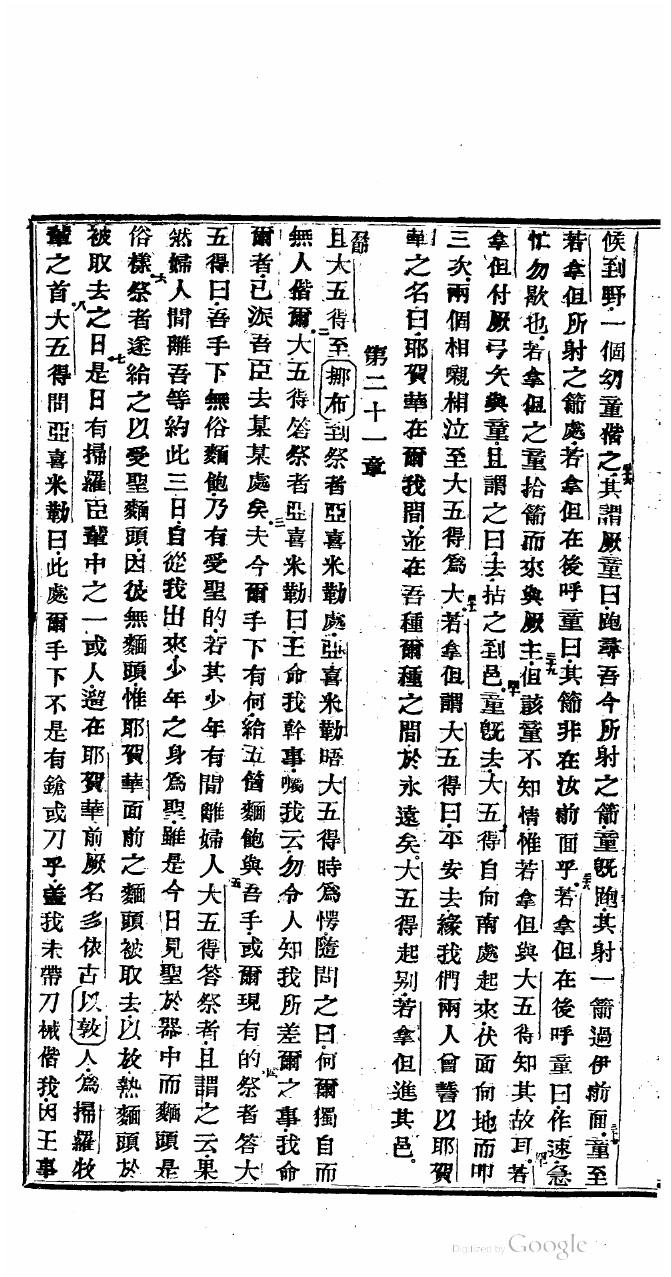 候到野一個幼童偕之其謂厥童曰跑尋吾今所射之箭童旣跑其射一箭過伊前面童至
若拿但所射之箭處若拿但在後呼童曰其箭非在汝前面乎若拿但在後呼童曰作速急
忙勿歇也若拿但之童拾箭而來與厥主但該童不知情惟若拿但與大五得知其故耳若
拿但付厥弓矢與童且謂之曰去拮之到邑童旣去大五得自向南處起來伏面向地而叩
三次兩個相親相泣至大五得爲大若拿但謂大五得曰平安去緣我們兩人曾誓以耶賀
華之名曰耶賀華在爾我間並在吾種爾種之間於永遠矣大五得起別若拿但進其邑
第二十一章
且大五得至挪布到祭者亞喜米勒處亞喜米勒晤大五得時爲愕隨問之曰何爾獨自而
無人偕爾大五得答祭者亞喜米勒曰王命我幹事囑我云勿令人知我所差爾之事我命
爾者已派吾臣去某某處矣夫今爾手下有何給五個麵飽與吾手或爾現有的祭者答大
五得曰吾手下無俗麵飽乃有受聖的若其少年有間離婦人大五得答祭者且謂之云果
然婦人間離吾等約此三日自從我出來少年之身爲聖雖是今日見聖於器中而麵頭是
俗樣祭者遂給之以受聖麵頭因彼無麵頭惟耶賀華面前之麵頭被取去以放熱麵頭於
被取去之日是日有掃羅臣輩中之一或人遛在耶賀華前厥名多依古以敦人爲掃羅牧
輩之首大五得問亞喜米勒曰此處爾手下不是有鎗或刀乎蓋我未帶刀械偕我因王事
Digitized by Google